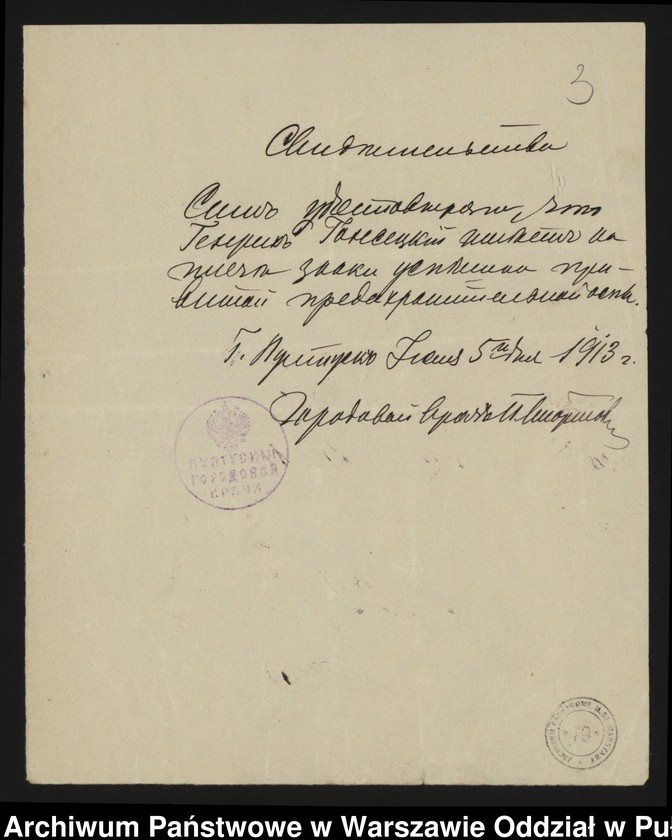 3
Свидѣтельство
Симъ удостовѣряю, что
Генрихъ Гонсецкій имѣетъ на
плечѣ знаки успѣшно при-
витой предохранительной оспы.
Г. Пултускъ Іюля 5го дня 1913 г.
Городовой Врачъ
ПУЛТУСКІЙ
ГОРОДОВОЙ
ВРАЧЪ
79
Archiwum Państwowe w Warszawie Oddział w Pu